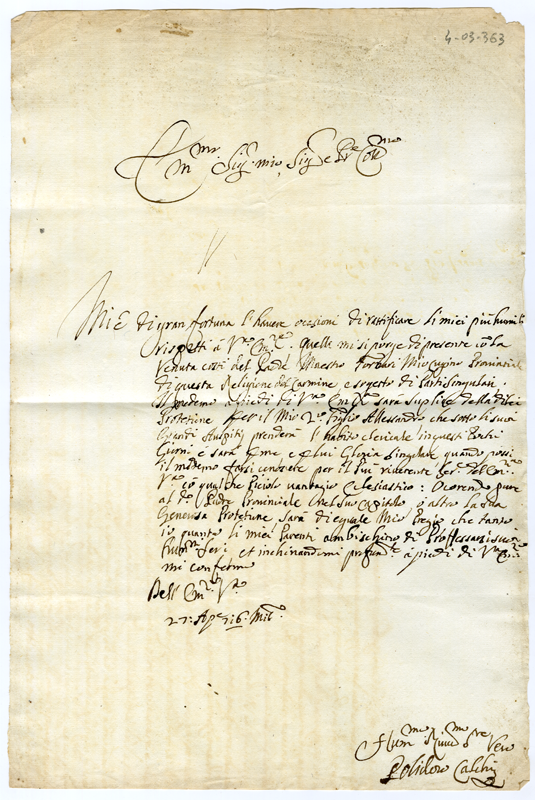 4-03-363
Em.mo Sig.r mio, Sig.r e Pr.e Col.mo
Mi è di gran fortuna l'havere occasioni di rattificare li miei più humili
rispetti à V.ra Em.za quelle mi si porge di presente cō la
Venuta costì del Padre Maestro Forbari Mio Cugino Provinciale
di questa Religione del Carmine, e sogetto di Parti singulari.
Il medemo à piedi di V.ra Em.za sarà suplice della di lei
Protetione per il Mio Figlio Allessandro che sotto li suoi
Grandi Auspitij prenderà l'habito clericale in questi Santi
Giorni e sarà come e lui Gloria singulare quando possi
il medemo farsi conoscere per il più riverente Ser.re dell'Em.za
V.ra cō qualche Piciolo vantagio Eclesiastico: Ocorendo pure
al d.o Padre Provinciale nel suo Capitolo ò altro la sua
Generosa Protetione sarà di equale Mio Pregio che tanto
io quanto li miei Parenti ambischino di Proffessarsi suoi
Hum.mi Servi et inchinandomi profund.te à piedi di V.ra Em.za
mi confermo
Dell' Em.za V.ra
27: Ap.e Mil.o
Hum.mo Ser.re Vero
Polidoro Calchi